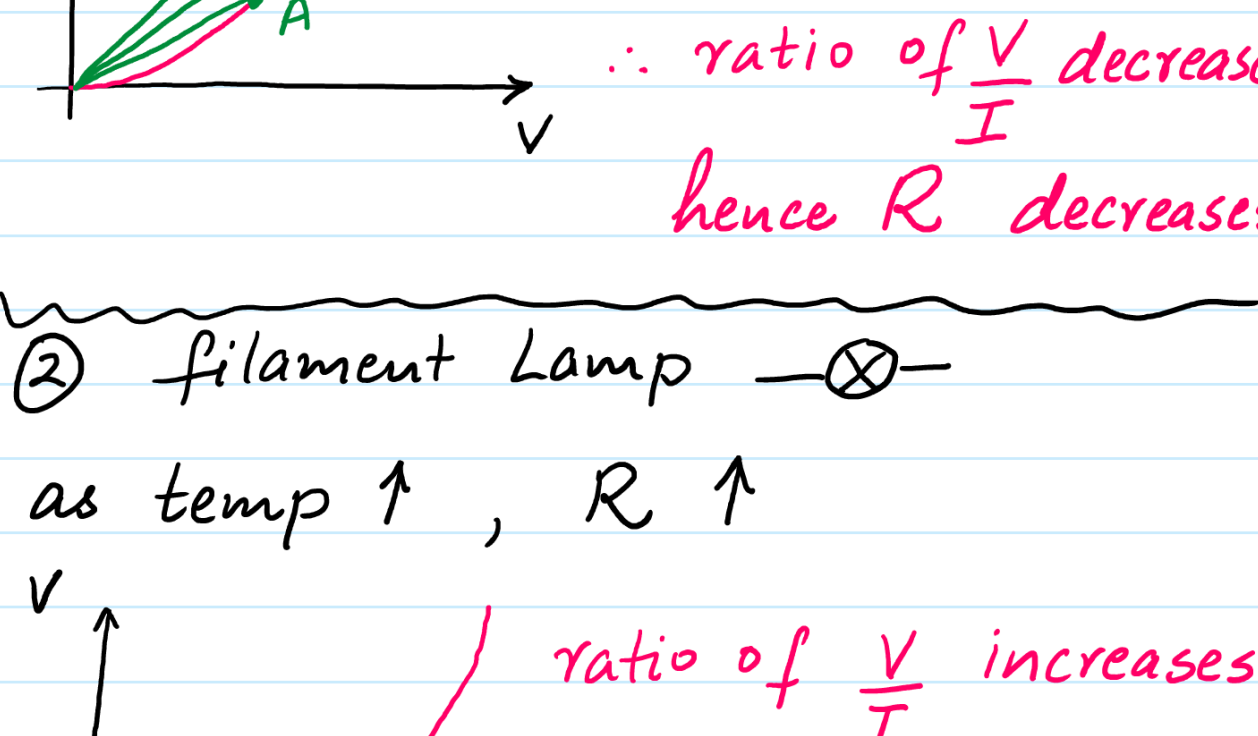 A
∴ ratio of V/I decreas
V
hence R decreases
② filament Lamp
as temp ↑ , R ↑
V
ratio of V/I increases